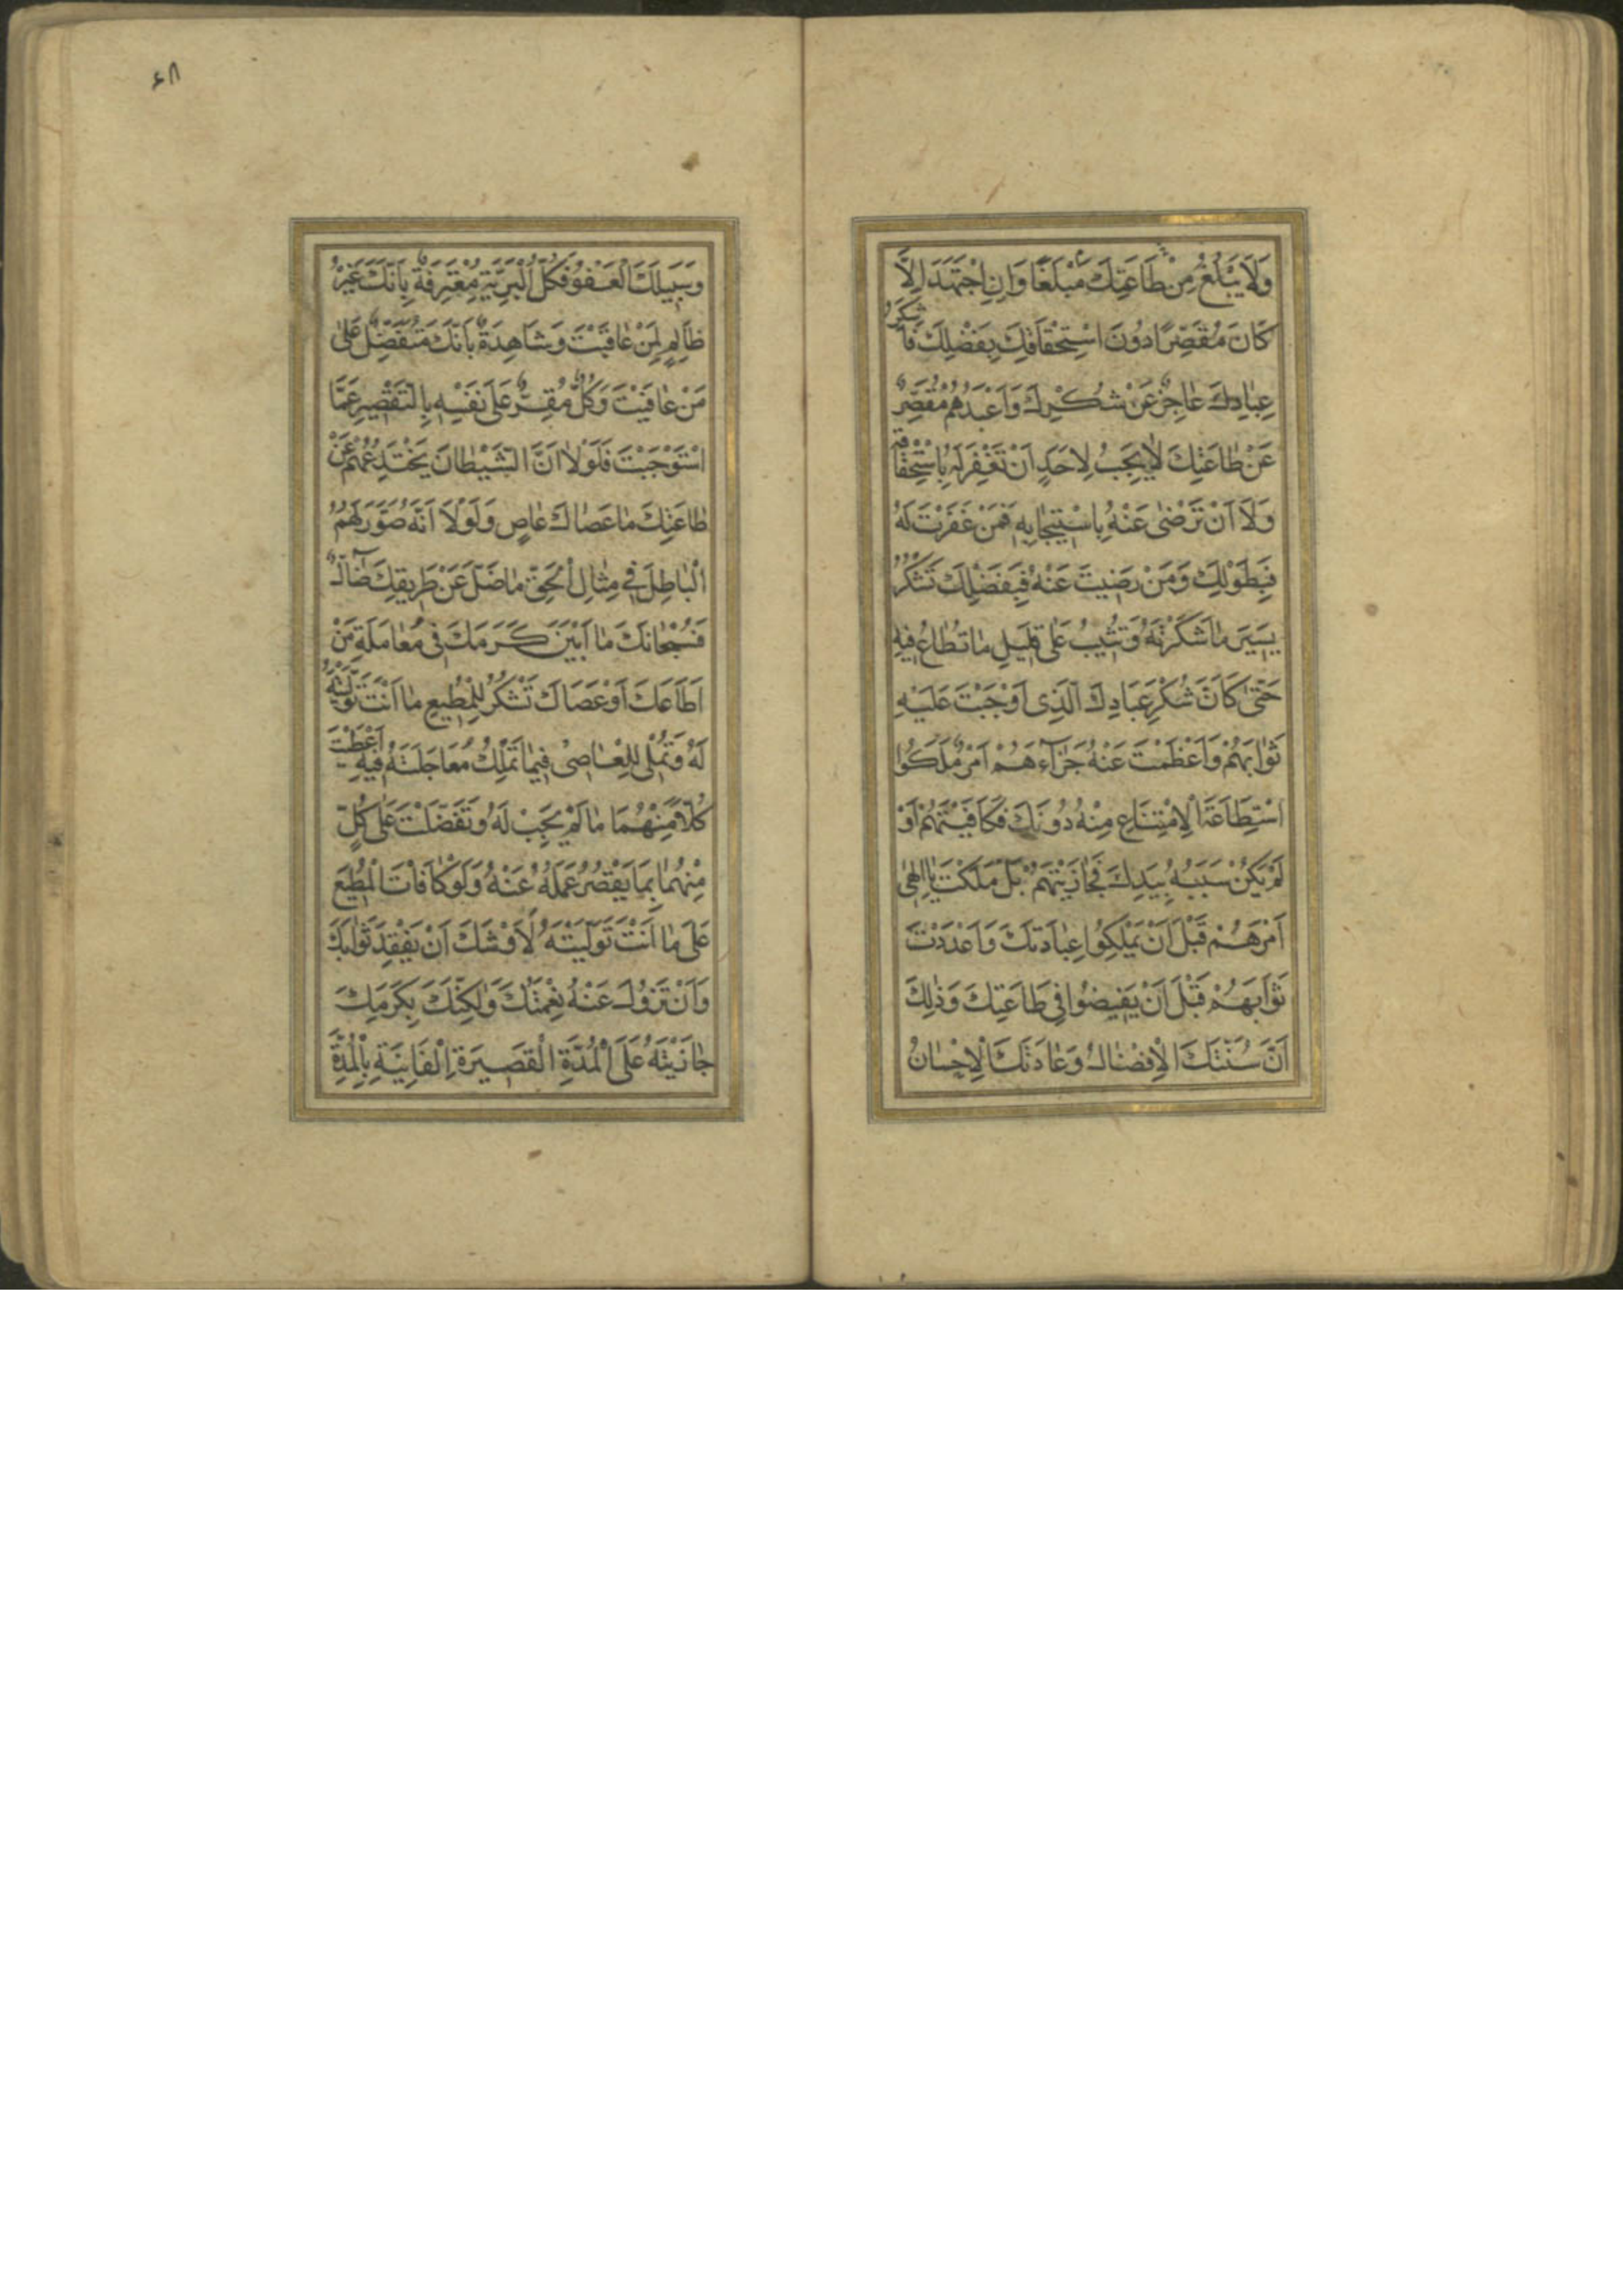 وَلَا يَبْلُغُ مِنْ طَاعَتِكَ مَبْلَغًا وَاِنِ اجْتَهَدَ اِلَّا
كَانَ مُقَصِّرًا دُونَ اسْتِحْقَاقِكَ بِفَضْلِكَ فَاَشْكَرُ
عِبَادِكَ عَاجِزٌ عَنْ شُكْرِكَ وَاَعْبَدُهُمْ مُقَصِّرٌ
عَنْ طَاعَتِكَ لَا يَجِبُ لِاَحَدٍ اَنْ تَغْفِرَ لَهُ بِاسْتِحْقَاقِهِ
وَلَا اَنْ تَرْضٰى عَنْهُ بِاسْتِيجَابِهِ فَمَنْ غَفَرْتَ لَهُ
فَبِطَوْلِكَ وَمَنْ رَضِيتَ عَنْهُ فَبِفَضْلِكَ تَشْكُرُ
يَسِيرَ مَا شَكَرْتَهُ وَتُثِيبُ عَلٰى قَلِيلِ مَا تُطَاعُ فِيهِ
حَتّٰى كَاَنَّ شُكْرَ عِبَادِكَ الَّذِى اَوْجَبْتَ عَلَيْهِ
ثَوَابَهُمْ وَاَعْظَمْتَ عَنْهُ جَزَآءَهُمْ اَمْرٌ مَلَكُوا
اسْتِطَاعَةَ الْاِمْتِنَاعِ مِنْهُ دُونَكَ فَكَافَيْتَهُمْ اَوْ
لَمْ يَكُنْ سَبَبُهُ بِيَدِكَ فَجَازَيْتَهُمْ بَلْ مَلَكْتَ يَا اِلٰهِى
اَمْرَهُمْ قَبْلَ اَنْ يَمْلِكُوا عِبَادَتَكَ وَاَعْدَدْتَ
ثَوَابَهُمْ قَبْلَ اَنْ يُفِيضُوا فِى طَاعَتِكَ وَذٰلِكَ
اَنَّ سُنَّتَكَ الْاِفْضَالُ وَعَادَتَكَ الْاِحْسَانُ
٤٨
وَسَبِيلَكَ الْعَفْوُ فَكُلُّ الْبَرِيَّةِ مُعْتَرِفَةٌ بِاَنَّكَ غَيْرُ
ظَالِمٍ لِمَنْ عَاقَبْتَ وَشَاهِدَةٌ بِاَنَّكَ مُتَفَضِّلٌ عَلٰى
مَنْ عَافَيْتَ وَكُلٌّ مُقِرٌّ عَلٰى نَفْسِهِ بِالتَّقْصِيرِ عَمَّا
اسْتَوْجَبْتَ فَلَوْلَا اَنَّ الشَّيْطَانَ يَخْتَدِعُهُمْ عَنْ
طَاعَتِكَ مَا عَصَاكَ عَاصٍ وَلَوْلَا اَنَّهُ صَوَّرَ لَهُمُ
الْبَاطِلَ فِى مِثَالِ الْحَقِّ مَا ضَلَّ عَنْ طَرِيقِكَ ضَآلٌّ
فَسُبْحَانَكَ مَا اَبْيَنَ كَرَمَكَ فِى مُعَامَلَةِ مَنْ
اَطَاعَكَ اَوْ عَصَاكَ تَشْكُرُ لِلْمُطِيعِ مَا اَنْتَ تَوَلَّيْتَهُ
لَهُ وَتُمْلِى لِلْعَاصِى فِيمَا تَمْلِكُ مُعَاجَلَتَهُ فِيهِ اَعْطَيْتَ
كُلًّا مِنْهُمَا مَا لَمْ يَجِبْ لَهُ وَتَفَضَّلْتَ عَلٰى كُلٍّ
مِنْهُمَا بِمَا يَقْصُرُ عَمَلُهُ عَنْهُ وَلَوْ كَافَاْتَ الْمُطِيعَ
عَلٰى مَا اَنْتَ تَوَلَّيْتَهُ لَاَوْشَكَ اَنْ يَفْقِدَ ثَوَابَكَ
وَاَنْ تَزُولَ عَنْهُ نِعْمَتُكَ وَلٰكِنَّكَ بِكَرَمِكَ
جَازَيْتَهُ عَلَى الْمُدَّةِ الْقَصِيرَةِ الْفَانِيَةِ بِالْمُدَّةِ